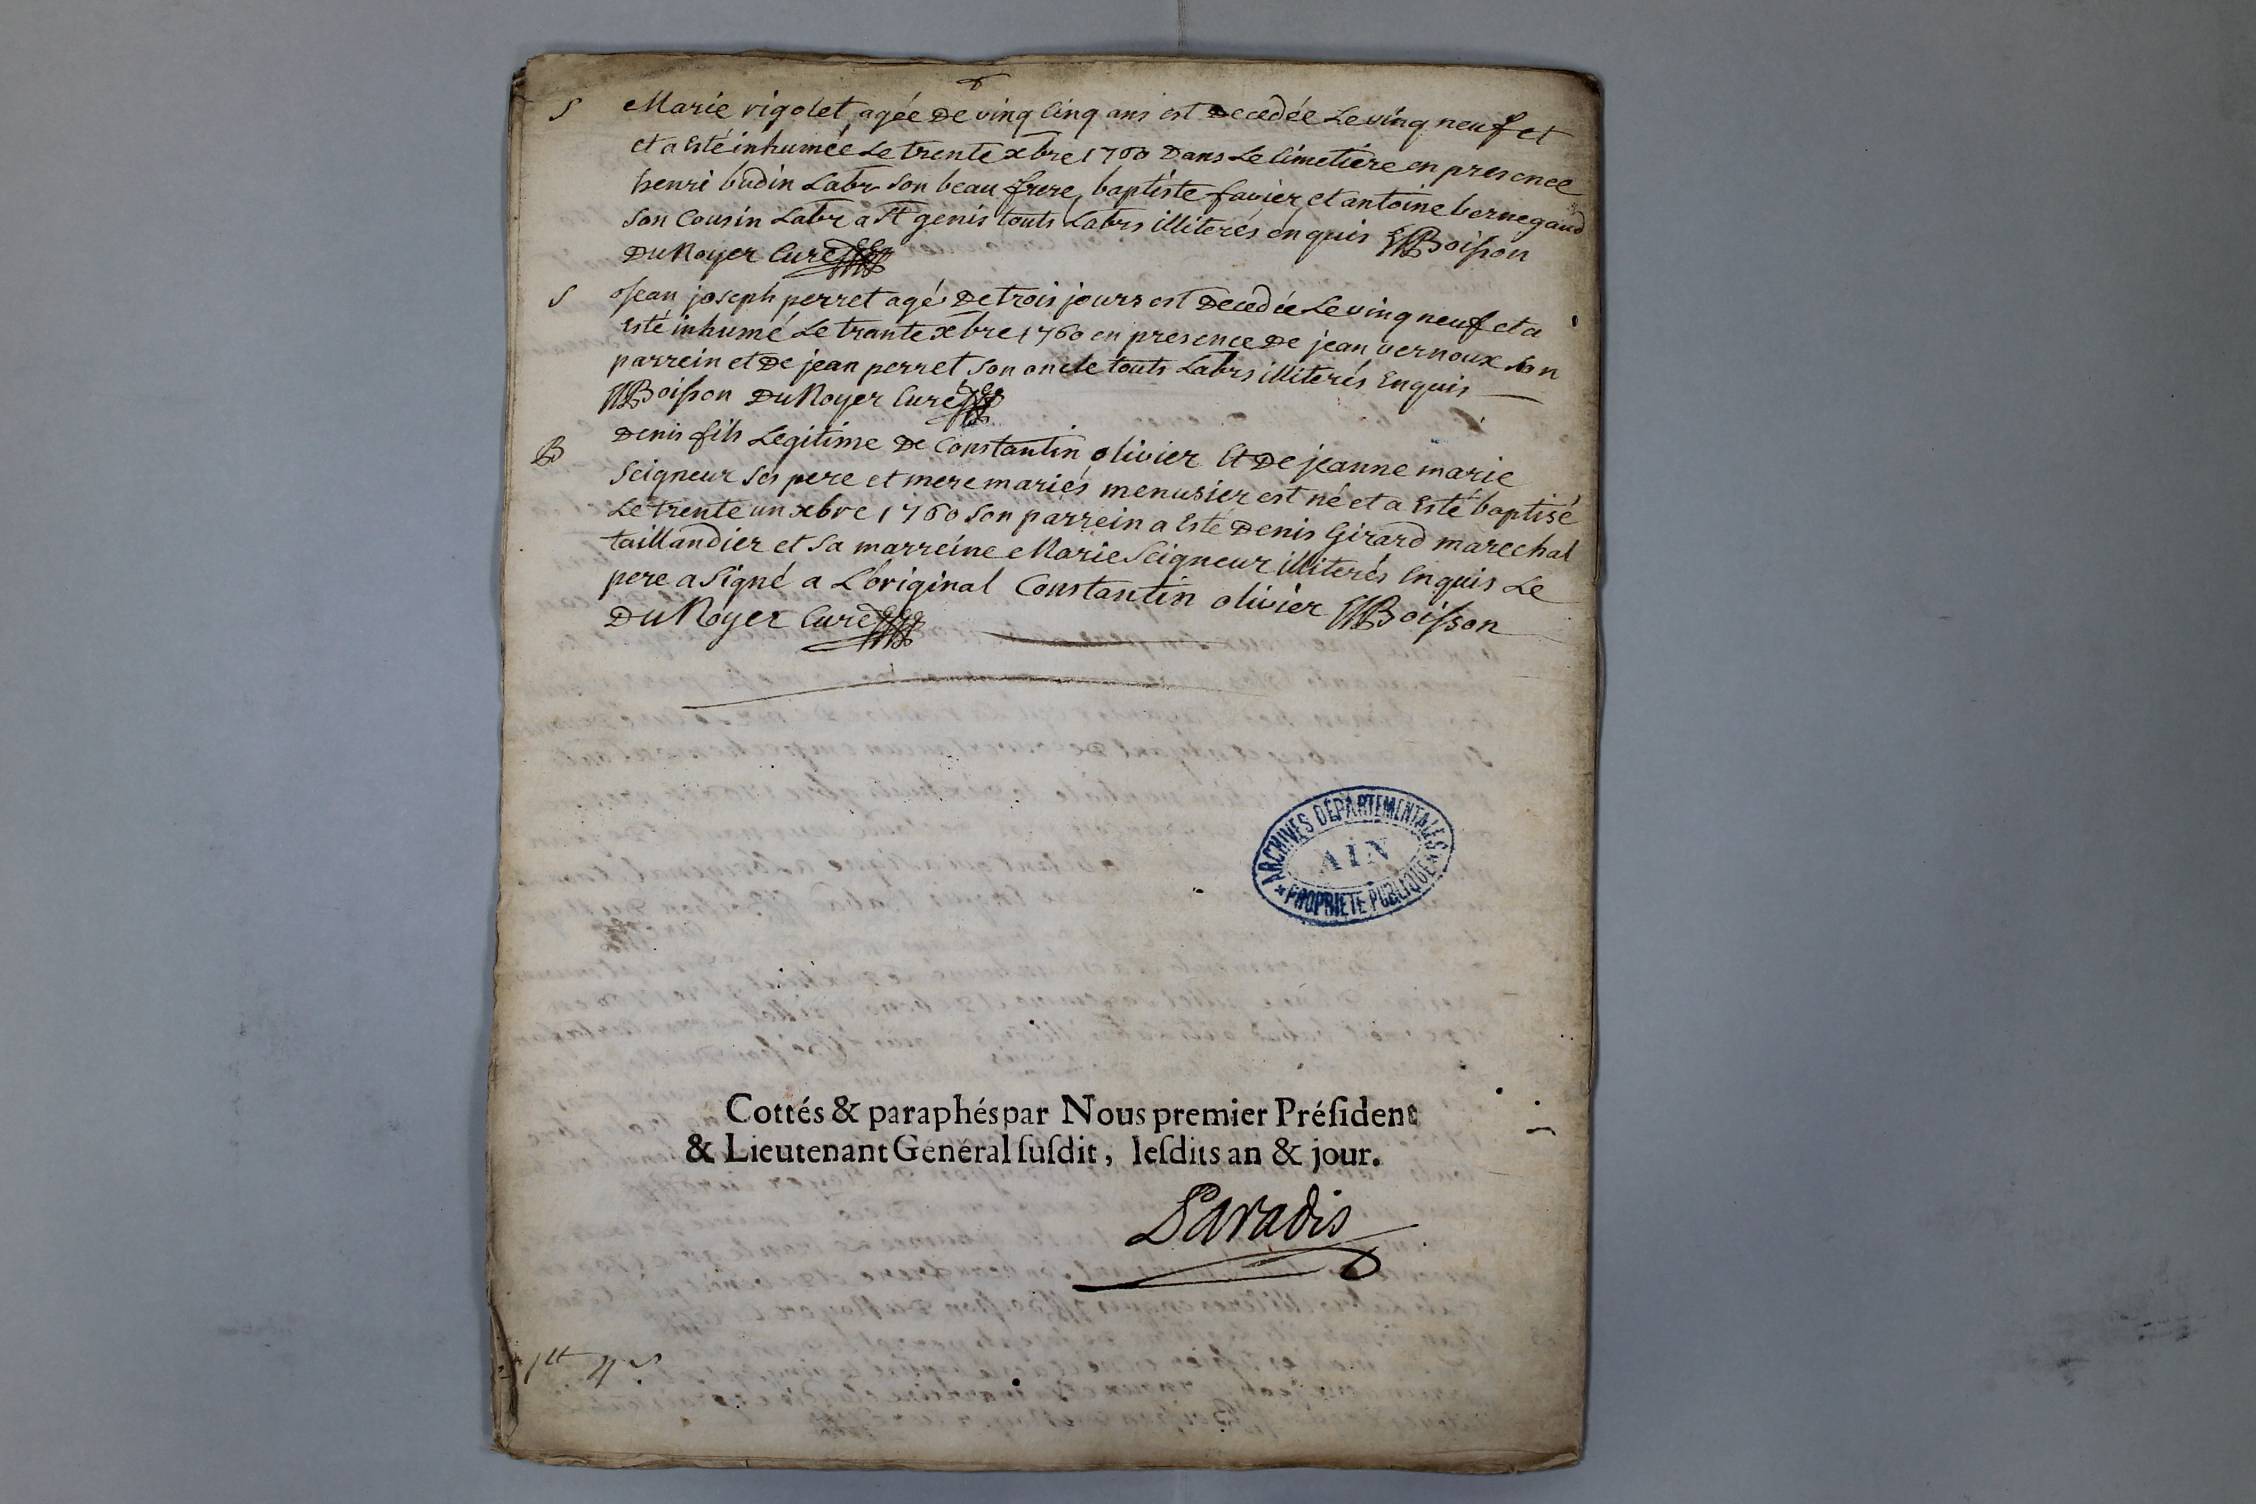 S Marie rigolet agée De vinq Cinq ans est Decedée Le vinq neuf et
et a Esté inhumée Le trente xbre 1760 Dans Le Cimetiere en presence
henri budin Labr son beau frere, baptiste favier, et antoine bernegaud
son Cousin Labr a St genis touts Labrs illiterés enquis Boisson
Du Noyer Curé
S Jean joseph perret agé De trois jours est Decedée Le vinq neuf et a
Esté inhumé Le trante xbre 1760 en presence De jean vernoux son
parrein et De jean perret son oncle touts Labrs illiterés Enquis
Boisson Du Noyer Curé
B Denis fils Legitime De Constantin olivier Et De jeanne marie
Seigneur ses pere et mere mariés menusier est né et a Esté baptisé
Le trente un xbre 1760 son parrein a Esté Denis Girard marechal
taillandier et sa marreine Marie Seigneur illiterés Enquis Le
pere a signé a L'original Constantin olivier Boisson
Du Noyer Curé
ARCHIVES DÉPARTEMENTALES
AIN
* PROPRIÉTÉ PUBLIQUE *
Cottés & paraphés par Nous premier Préſident
& Lieutenant Genéral ſuſdit, leſdits an & jour.
Paradis